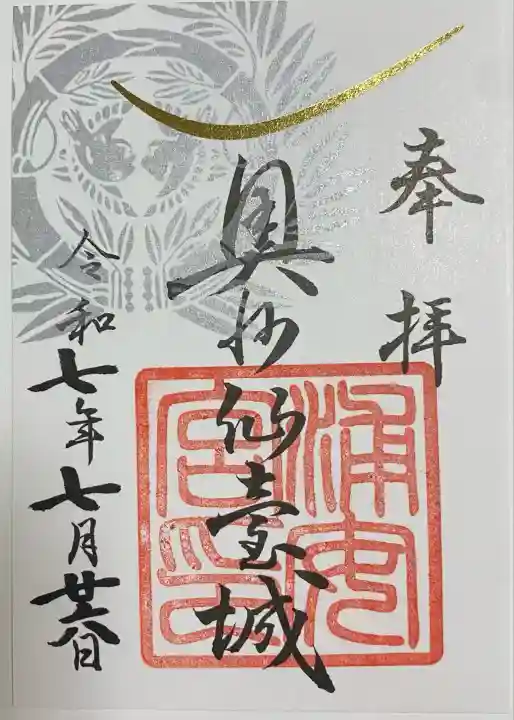 奉拝
奥州仙臺城
浦安
宮印
令和七年七月廿八日